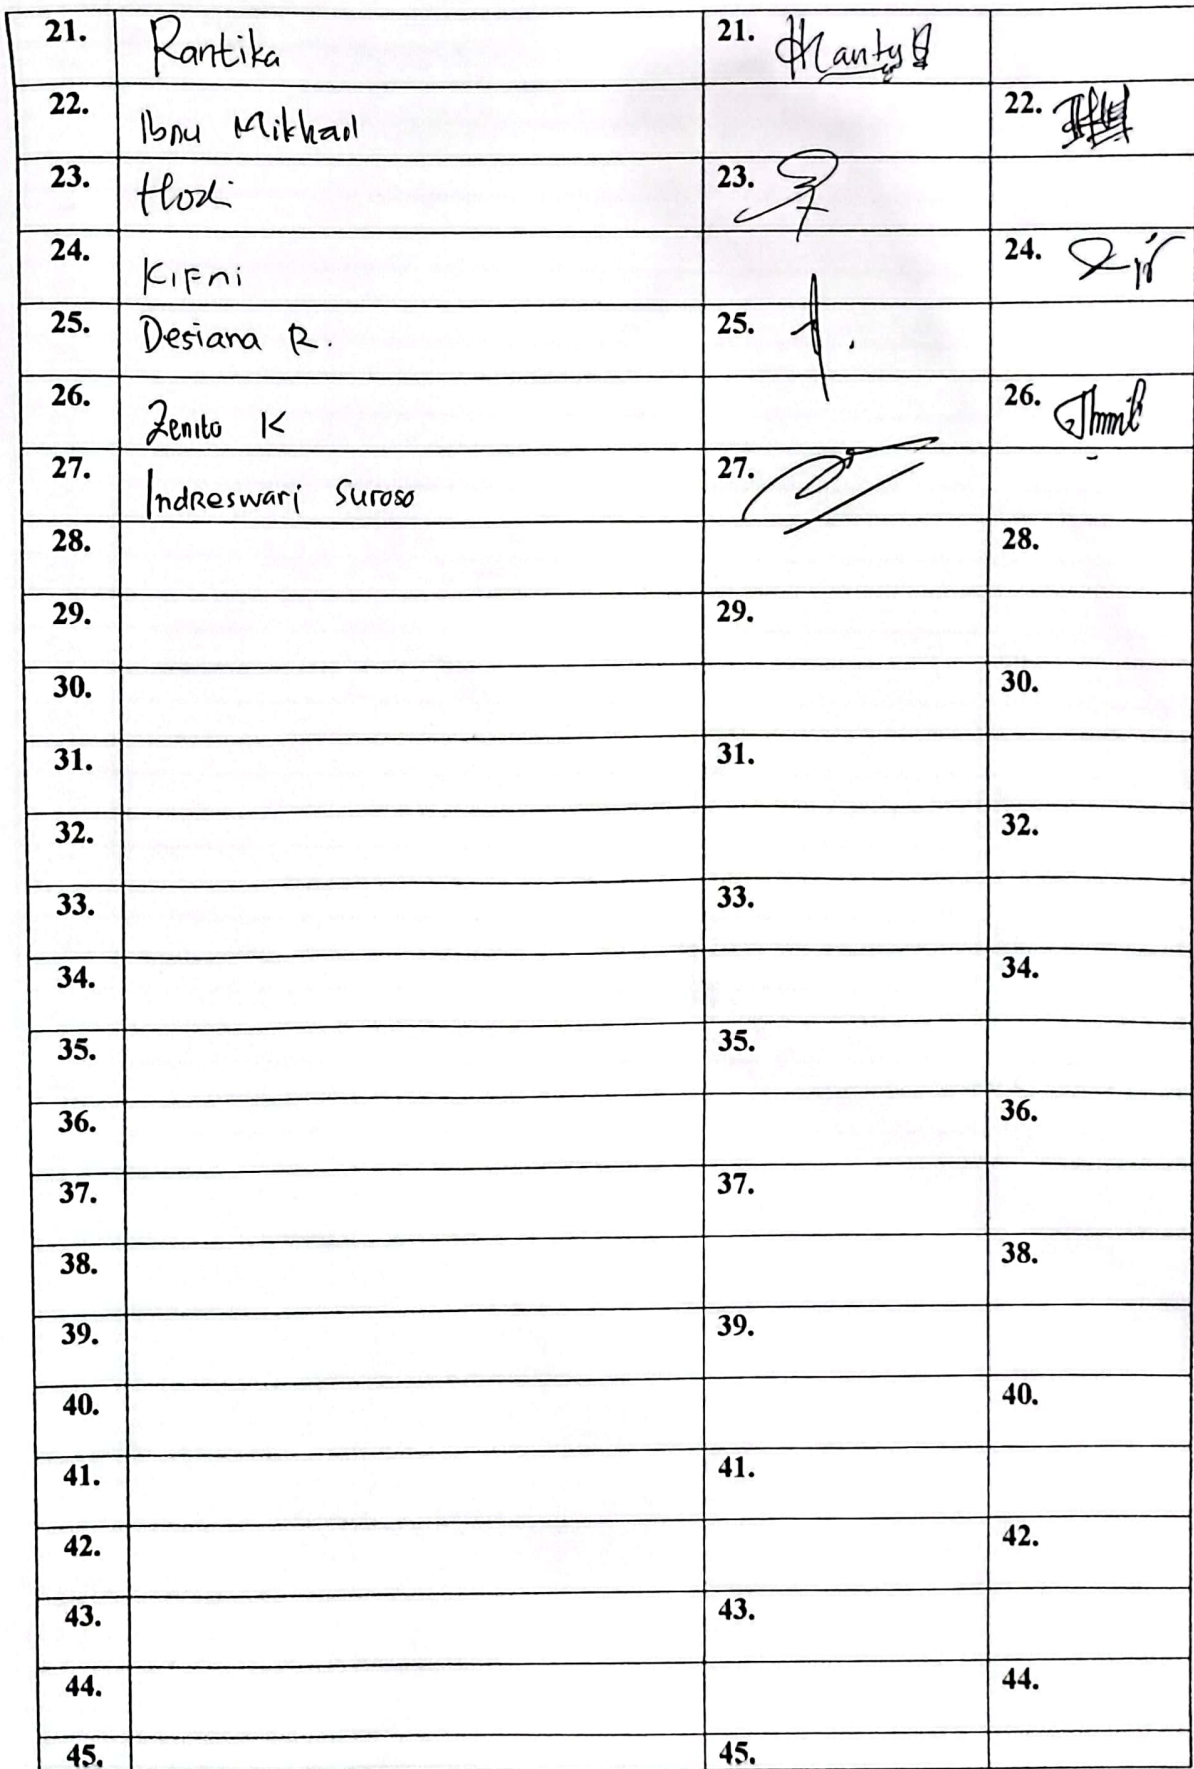 21. Rantika 21.
22. Ibnu Mikhail 22.
23. 23.
24. Kifni 24.
25. Desiana R. 25.
26. Zenito K 26.
27. Indreswari Suroso 27.
28. 28.
29. 29.
30. 30.
31. 31.
32. 32.
33. 33.
34. 34.
35. 35.
36. 36.
37. 37.
38. 38.
39. 39.
40. 40.
41. 41.
42. 42.
43. 43.
44. 44.
45. 45.